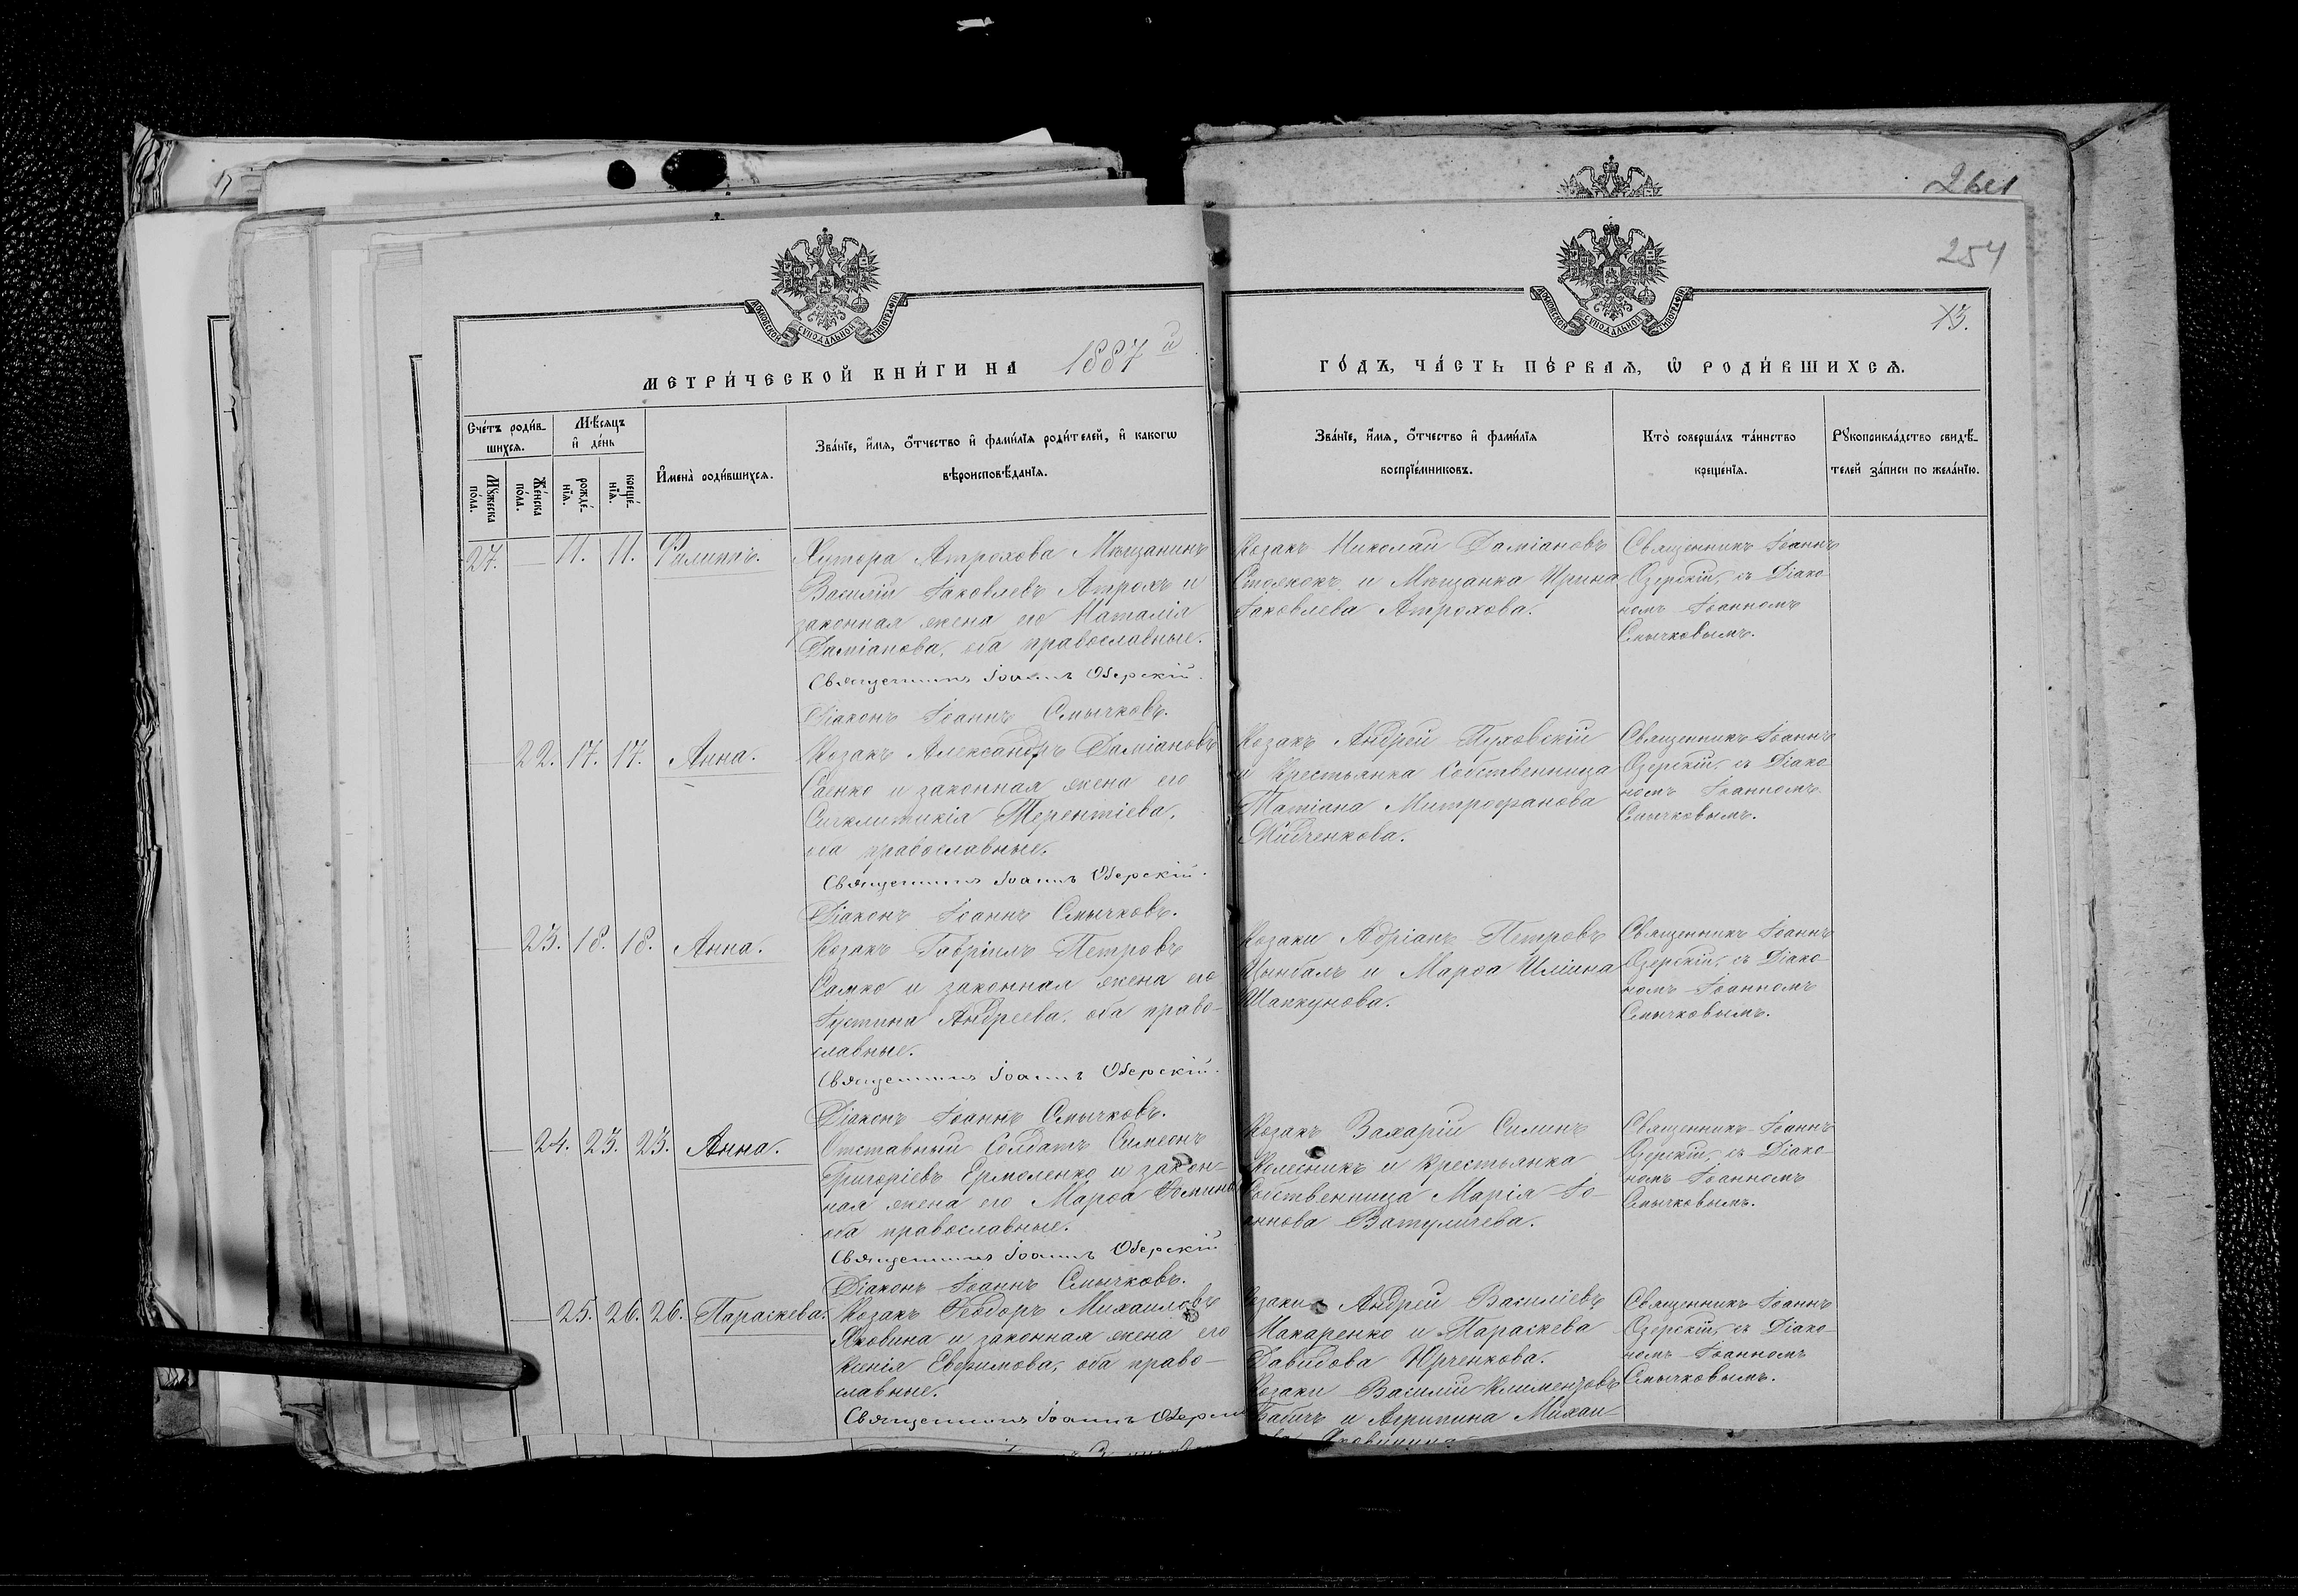 254
МОСКОВСКОЙ СѴНОДАЛЬНОЙ ТИПОГРАФІИ
МОСКОВСКОЙ СѴНОДАЛЬНОЙ ТИПОГРАФІИ
МЕТРИ́ЧЕСКОЙ КНИ́ГИ НА 1887 й
ГО́ДЪ, ЧА́СТЬ ПЕ́РВАѦ, Ѡ҆ РОДИ́ВШИХСѦ.
Сче́тъ роди́в-
шихся.
Мѣ́сяцъ
и҆ де́нь
Му́жеска по́ла.
Же́нска по́ла.
рожде́-нїя.
креще́-нїя.
И҆мена̀ роди́вшихся.
Зва́нїе, и҆́мя, о҆́тчество и҆ фами́лїя роди́телей, и҆ како́гѡ
вѣроисповѣ́данїя.
Зва́нїе, и҆́мя, о҆́тчество и҆ фами́лїя
воспрїе́мниковъ.
Кто̀ соверша́лъ та́инство
креще́нїя.
Рꙋкоприкла́дство свидѣ́-
телей за́писи по жела́нїю.
27. — 11. 11. Филиппъ.
Хутора Атрохова Мѣщанинъ
Василій Іаковлевъ Атрохъ и
законная жена его Наталія
Даміанова, оба православные.
Священникъ Іоаннъ Озерскій.
Діаконъ Іоаннъ Смычковъ.
Козакъ Николай Даміановъ
и Мѣщанка Ирина
Іаковлева Атрохова.
Священникъ Іоаннъ
Озерскій, съ Діако-
номъ Іоанномъ
Смычковымъ.
— 22. 17. 17. Анна.
Козакъ Александръ Даміановъ
Саенко и законная жена его
Синклитикія Терентіева,
оба православные.
Священникъ Іоаннъ Озерскій.
Діаконъ Іоаннъ Смычковъ.
Козакъ Андрей Пуховскій
и Крестьянка Собственница
Татіана Митрофанова
Священникъ Іоаннъ
Озерскій, съ Діако-
номъ Іоанномъ
Смычковымъ.
— 23. 18. 18. Анна.
Козакъ Гавріилъ Петровъ
Самко и законная жена его
Іустина Андреева, оба право-
славные.
Священникъ Іоаннъ Озерскій.
Діаконъ Іоаннъ Смычковъ.
Козаки Адріанъ Петровъ
Цынбалъ и Марѳа Иліина
Шапкунова.
Священникъ Іоаннъ
Озерскій, съ Діако-
номъ Іоанномъ
Смычковымъ.
— 24. 23. 23. Анна.
Отставный Солдатъ Симеонъ
Григоріевъ Ермоленко и закон-
ная жена его Марѳа Ѳомина
оба православные.
Священникъ Іоаннъ Озерскій
Діаконъ Іоаннъ Смычковъ.
Козакъ Захарій Силинъ
Колесникъ и Крестьянка
Собственница Марія Іо-
аннова Ватуличева.
Священникъ Іоаннъ
Озерскій, съ Діако-
номъ Іоанномъ
Смычковымъ.
— 25. 26. 26. Параскева.
Козакъ Ѳеодоръ Михаиловъ
Яковина и законная жена его
Ксенія Евфимова, оба право-
славные.
Священникъ Іоаннъ
Козаки Андрей Василіевъ
Макаренко и Параскева
Давидова Юрченкова.
Козаки Василій Климентовъ
Бабичъ и Агрипина Михаи-
Священникъ Іоаннъ
Озерскій, съ Діако-
номъ Іоанномъ
Смычковымъ.